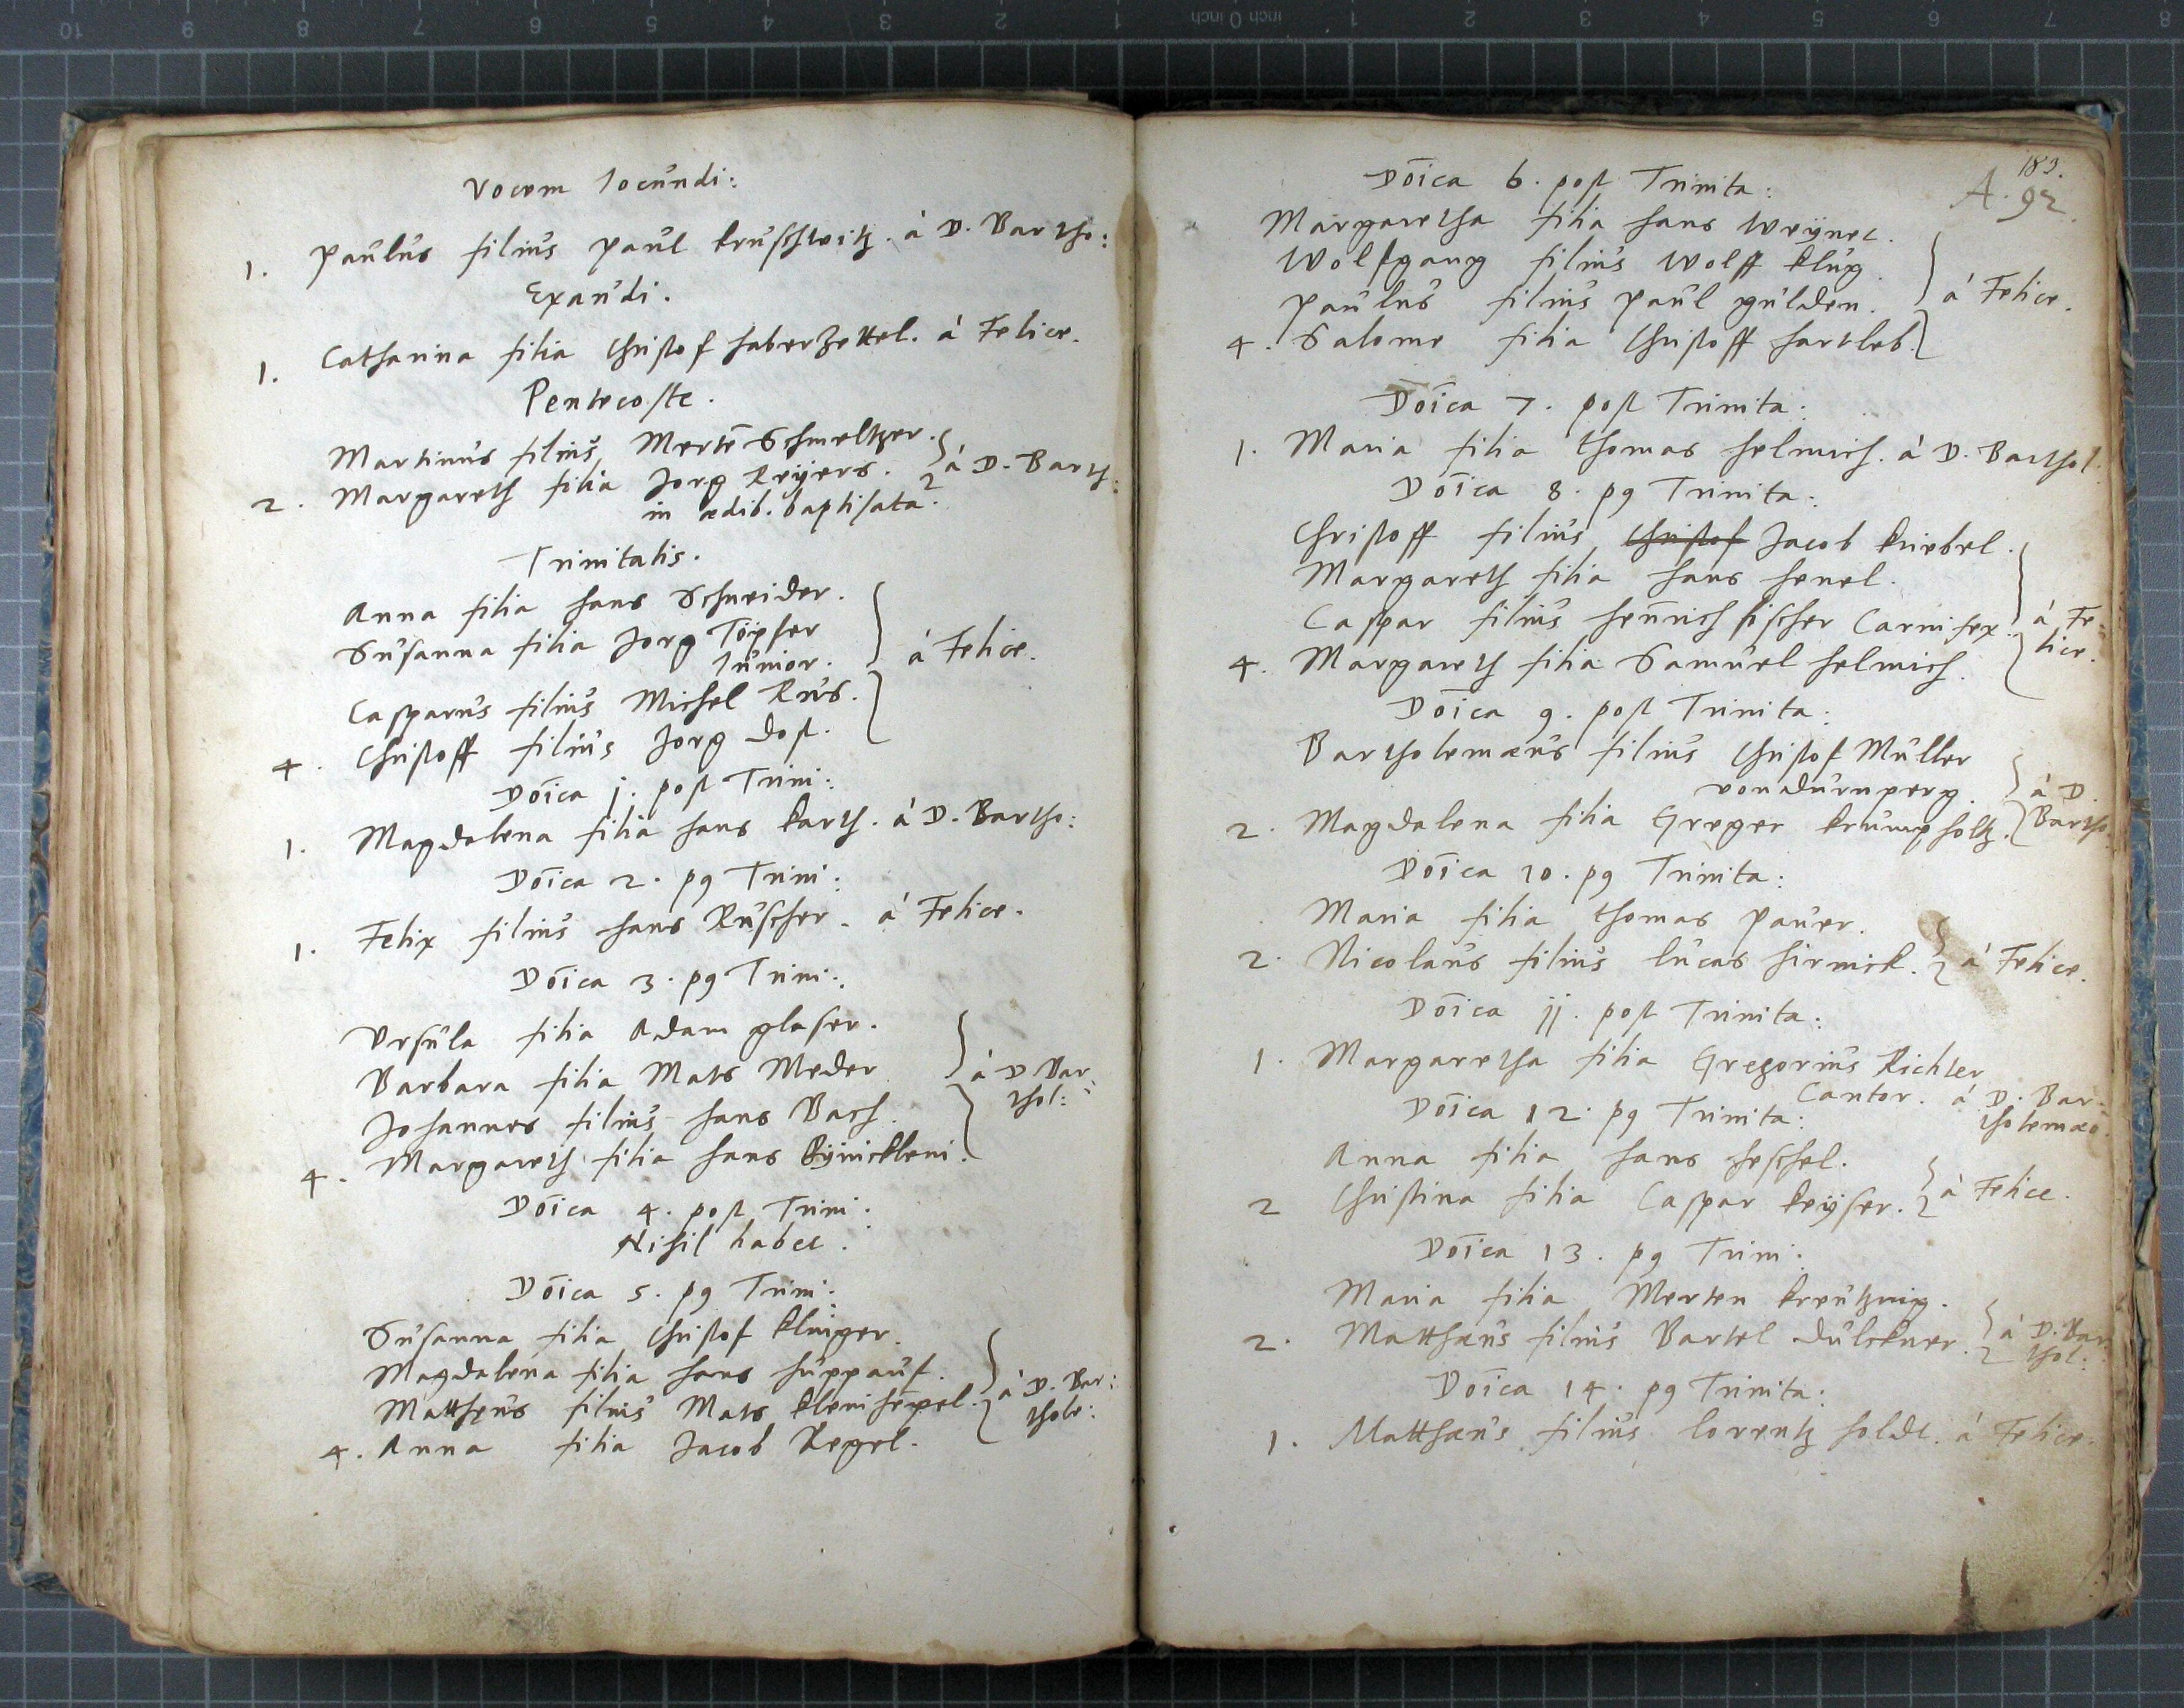 Vocem Iocundi:
1. Paulus filius Paul Kruschwitz. à D. Bartho:
Exaudi.
1. Catharina filia Christof Haberzettel. à Felice.
Pentecoste.
Martinus filius Mertē Schmeltzer.
2. Margareth filia Jorg Reÿers. à D. Barth:
in ædib. baptisata.
Trinitatis.
Anna filia Hans Schneider.
Susanna filia Jorg Töpfer
Iunior. à Felice.
Casparus filius Michel Rus.
4. Christoff filius Jorg Dost.
Dōica j. post Trini:
1. Magdalena filia Hans Karth. à D. Bartho:
Dōica 2. pg Trini:
1. Felix filius Hans Ruscher. à Felice.
Dōica 3. pg Trini:
Vrsula filia Adam Glaser.
Barbara filia Mats Meder à D Bar
Johannes filius Hans Bach. thol:
4. Margareth filia Hans
Dōica 4. post Trini:
Nihil habet.
Dōica 5. pg Trini:
Susanna filia Christof Klinger.
Magdalena filia Hans Huppauf.
Mattheus filius Mats à D. Bar:
4. Anna filia Jacob Kegel. thole:
10 9 8 7 6 5 4 3 2 1 inch 0 inch 1 2 3 4 5 6 7 8
183.
A. 92.
Dōica 6. post Trinita:
Margaretha filia Hans Weÿner.
Wolfgang filius Wolff Klug.
Paulus filius Paul Gulden. à Felice.
4. Salome filia Christoff Hartleb.
Dōica 7. post Trinita:
1. Maria filia Thomas Helmich. à D. Barthol.
Dōica 8. pg Trinita:
Christoff filius Christof Jacob Kriebel.
Margareth filia Hans Henel.
Caspar filius Henrich Fischer Carnifex. à Fe-
4. Margareth filia Samuel Helmich. lice.
Dōica 9. post Trinita:
Bartholemæus filius Christof Müller
von Dürnperg. à D.
2. Magdalena filia Greger Krumpholtz. Bartho
Dōica 10. pg Trinita:
Maria filia Thomas Pauer.
2. Nicolaus filius Lucas Hirnick. à Felice.
Dōica jj. post Trinita:
1. Margaretha filia Gregorius Richter
Cantor. à D. Bar-
Dōica 12. pg Trinita: tholemæo.
Anna filia Hans Heschel.
2 Christina filia Caspar Keÿser. à Felice.
Dōica 13. pg Trini:
Maria filia Merten Kreutznig.
2. Matthæus filius Bartel Dulckner. à D. Bar
thol:
Dōica 14. pg Trinita:
1. Matthæus filius Lorentz Holdt. à Felice.